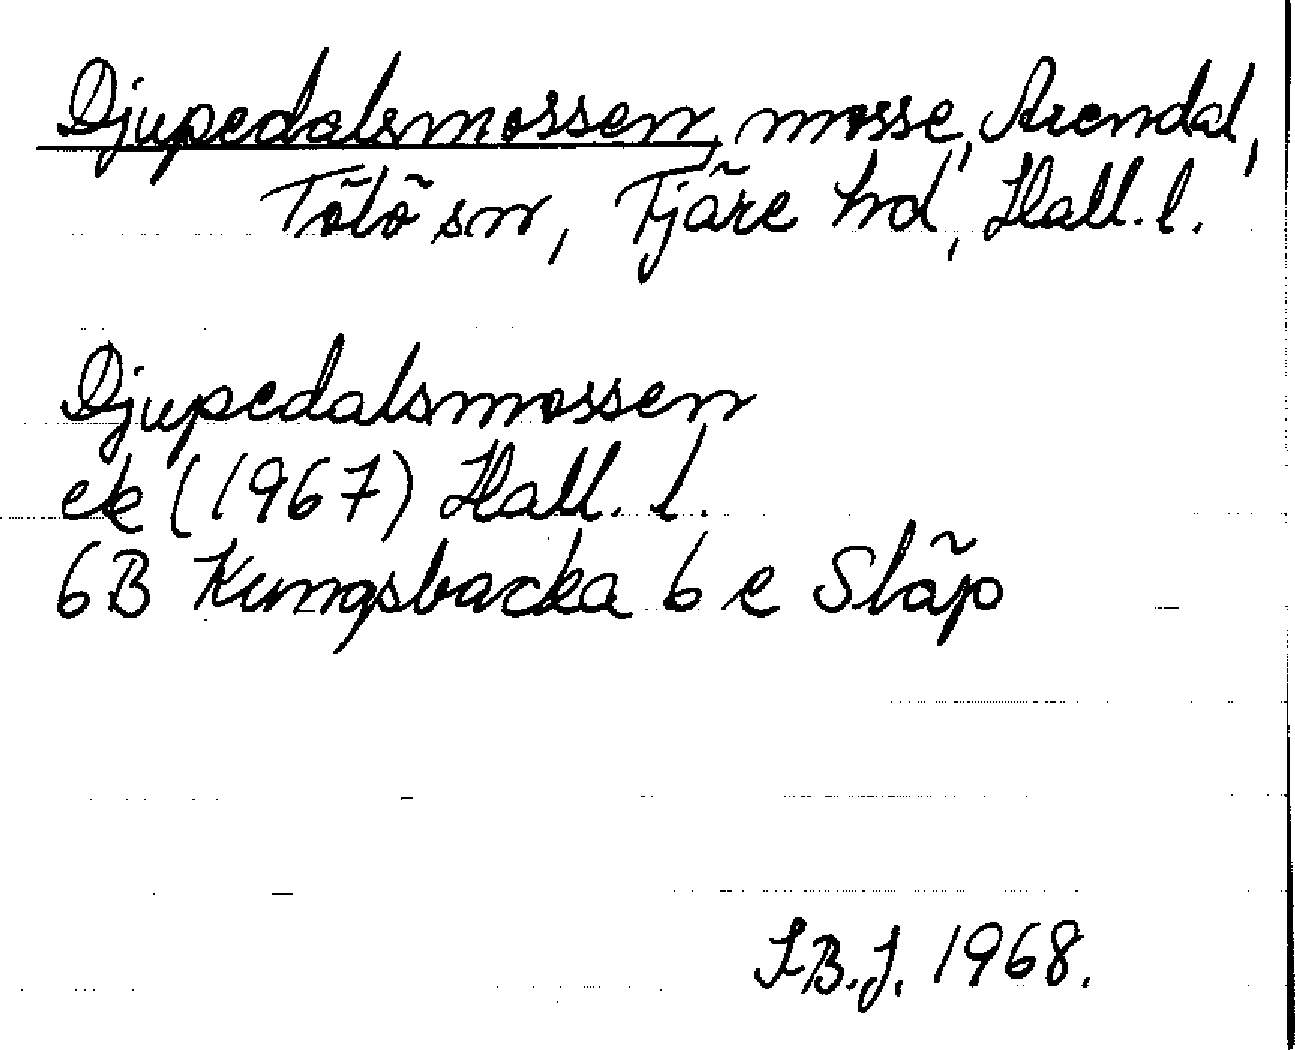 Djupedalsmossen, mosse, Arendal,
Tölö sn, Fjäre hd, Hall. l.
Djupedalsmossen
ek (1967) Hall. l.
6B Kungsbacka 6 e Släp
I.B.J. 1968.